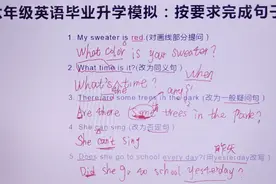 六年级英语毕业升学模拟：按要求完成句子
1. My sweater is red.(对画线部分提问)
What color is your sweater?
2. What time is it?(改为同义句) When
What's time?
any
3. There are some trees in the park.(改为一般疑问句)
Are there some trees in the park?
4. She can sing.(改为否定句)
She can't sing
5. Does she go to school every day?(用yesterday改写) 昨天
Did she go to school yesterday?